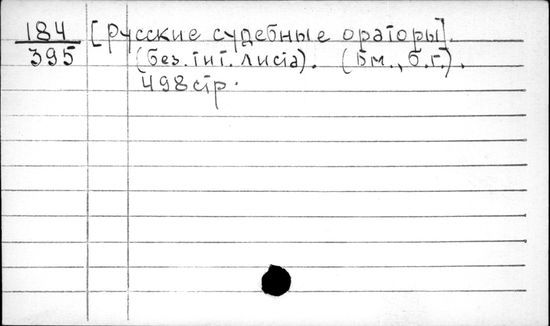 184 [Русские судебные ораторы].
395 (без.тит.листа). (Бм., б.г.).
498 стр.